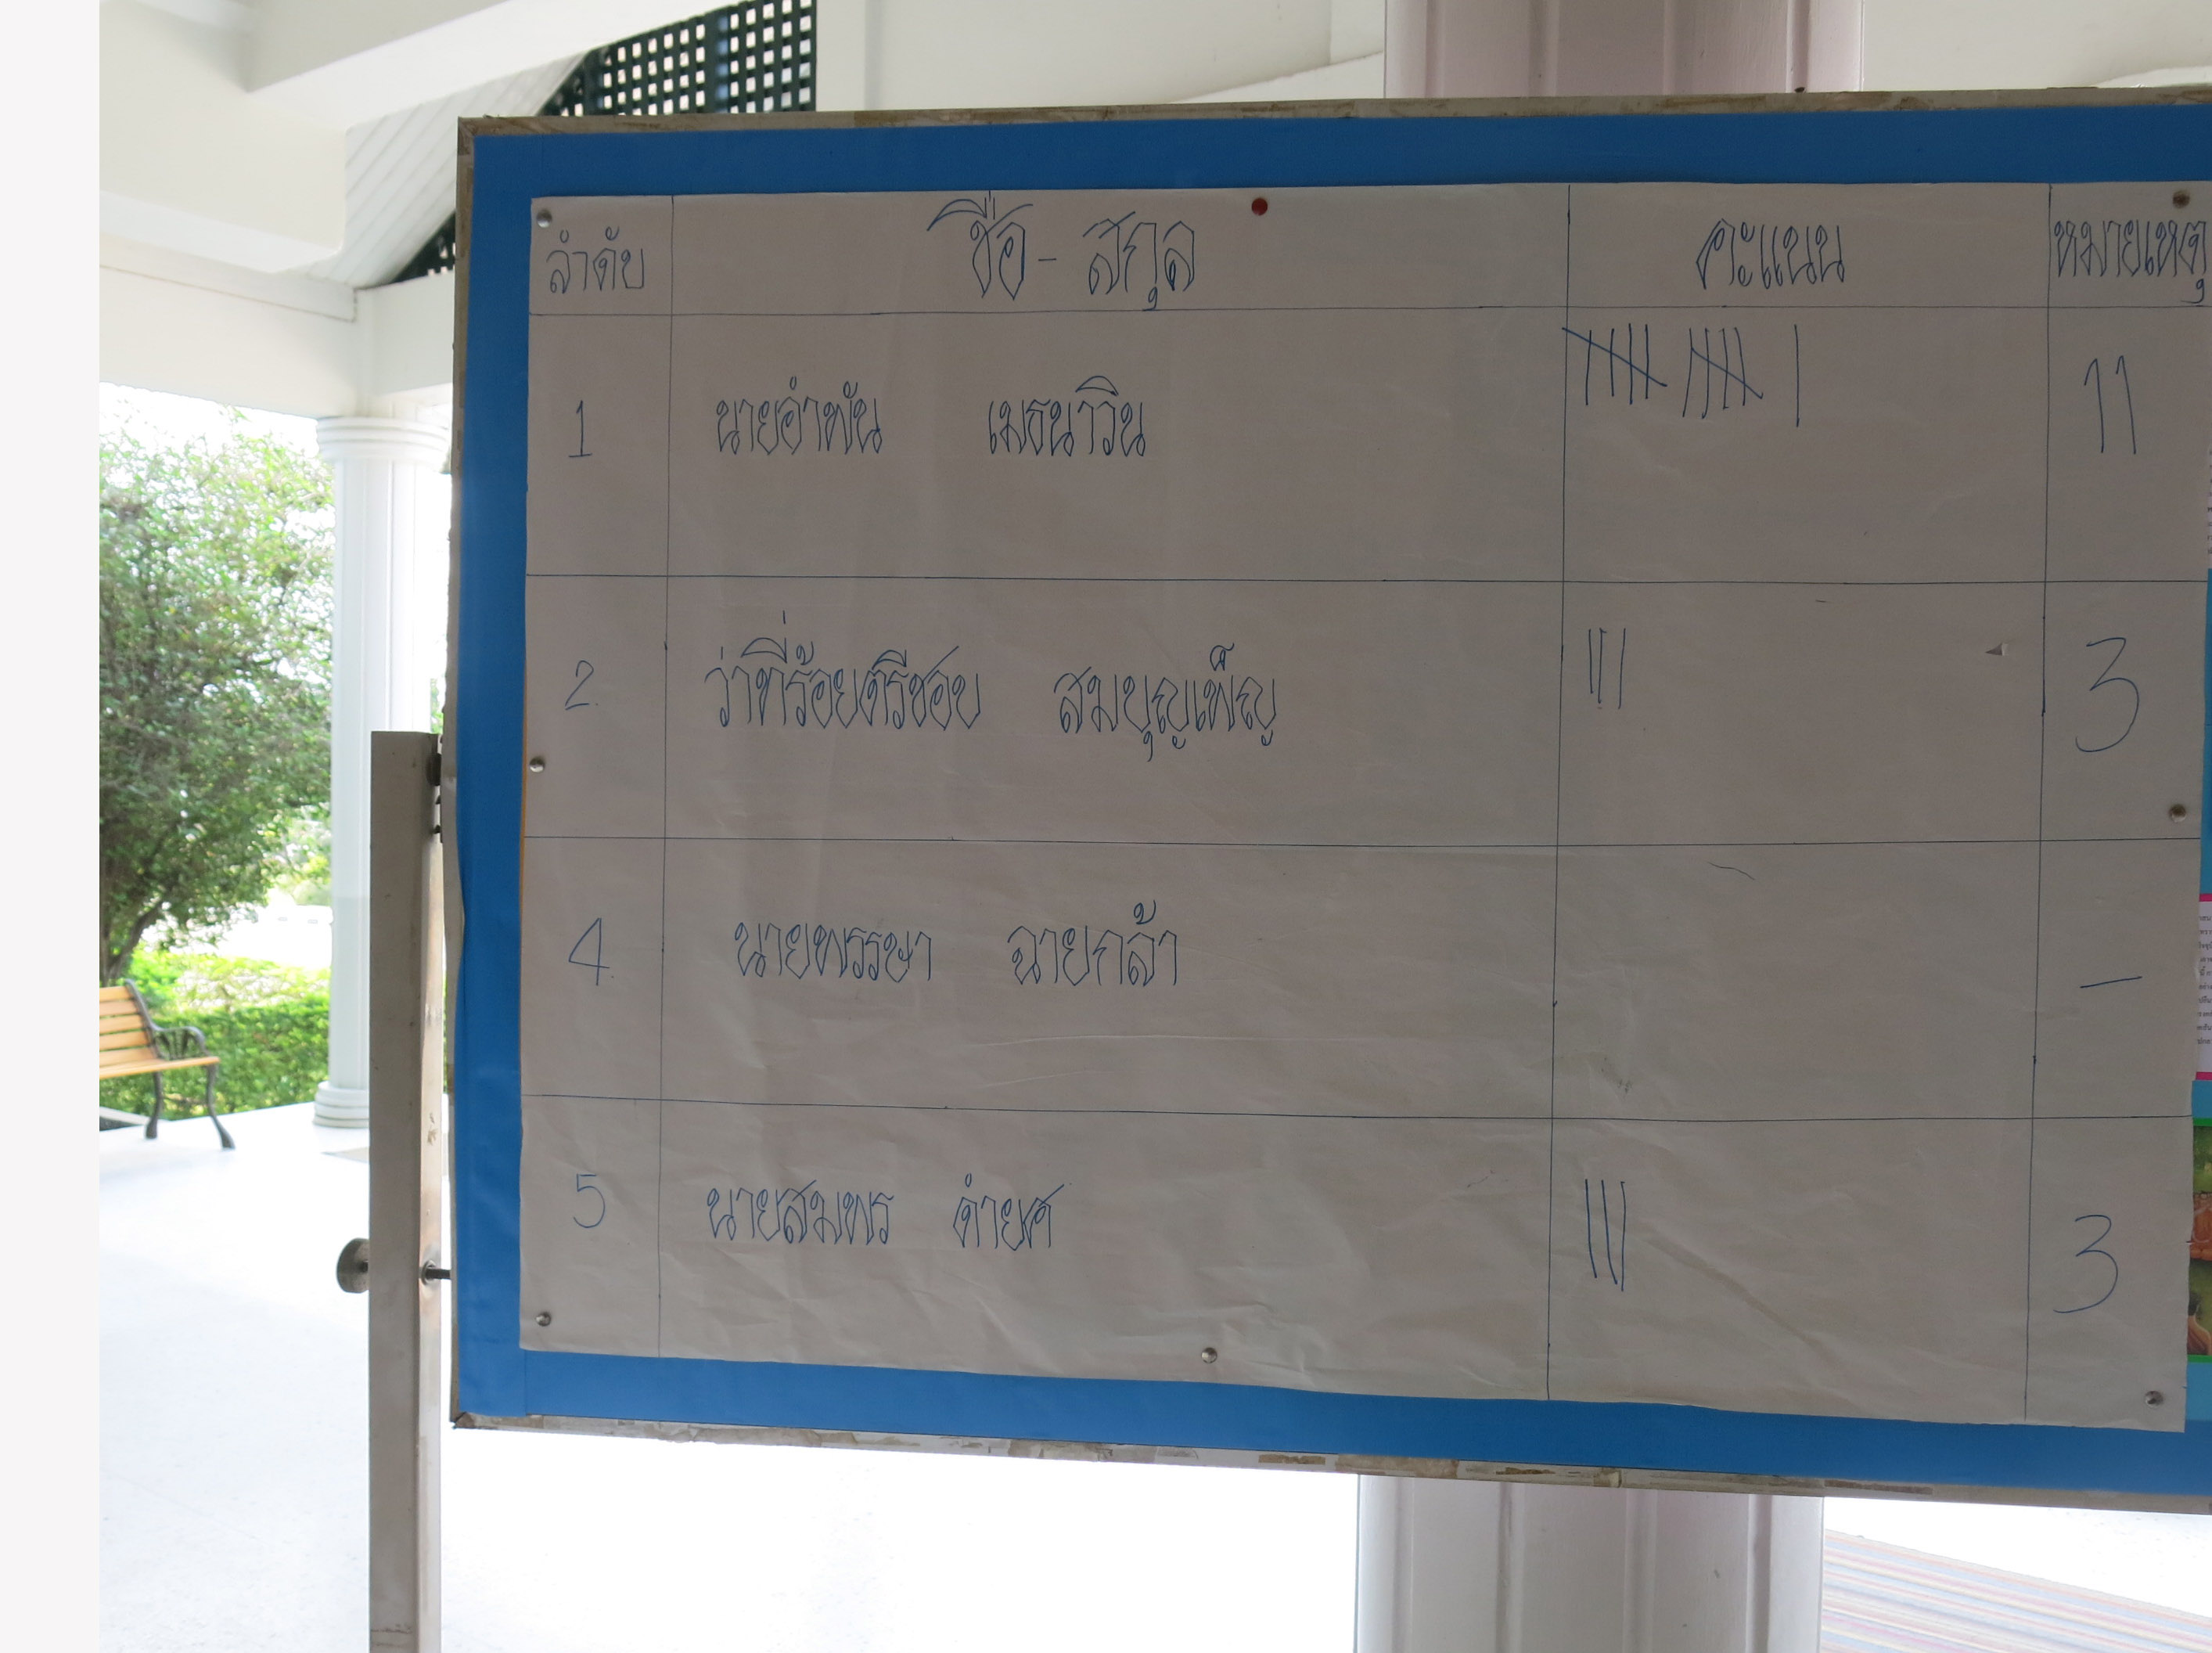 ลำดับ ชื่อ - สกุล คะแนน หมายเหตุ
1 นายอำพัน เมธนาวิน 11
2. ว่าที่ร้อยตรีชอบ สมบุญเพ็ญ 3
4. นายพรรษา ฉายกล้า -
5 นายสมพร คำยศ 3